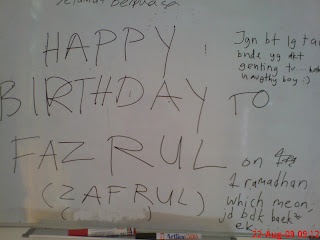 Selamat Berpuasa
HAPPY
BIRTHDAY TO
FAZRUL
(ZAFRUL)
Jgn bt lg tau
bnde yg dkt
genting tu...
naugthy boy :)
on
1 ramadhan
which mean,
jd bdk baek
ek
Artline
22 Aug 09 09:12